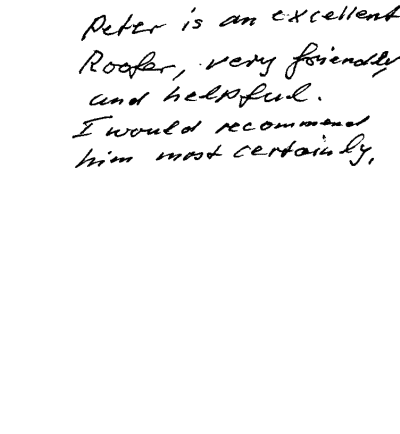 Peter is an excellent
Roofer, very friendly
and helpful.
I would recommend
him most certainly,